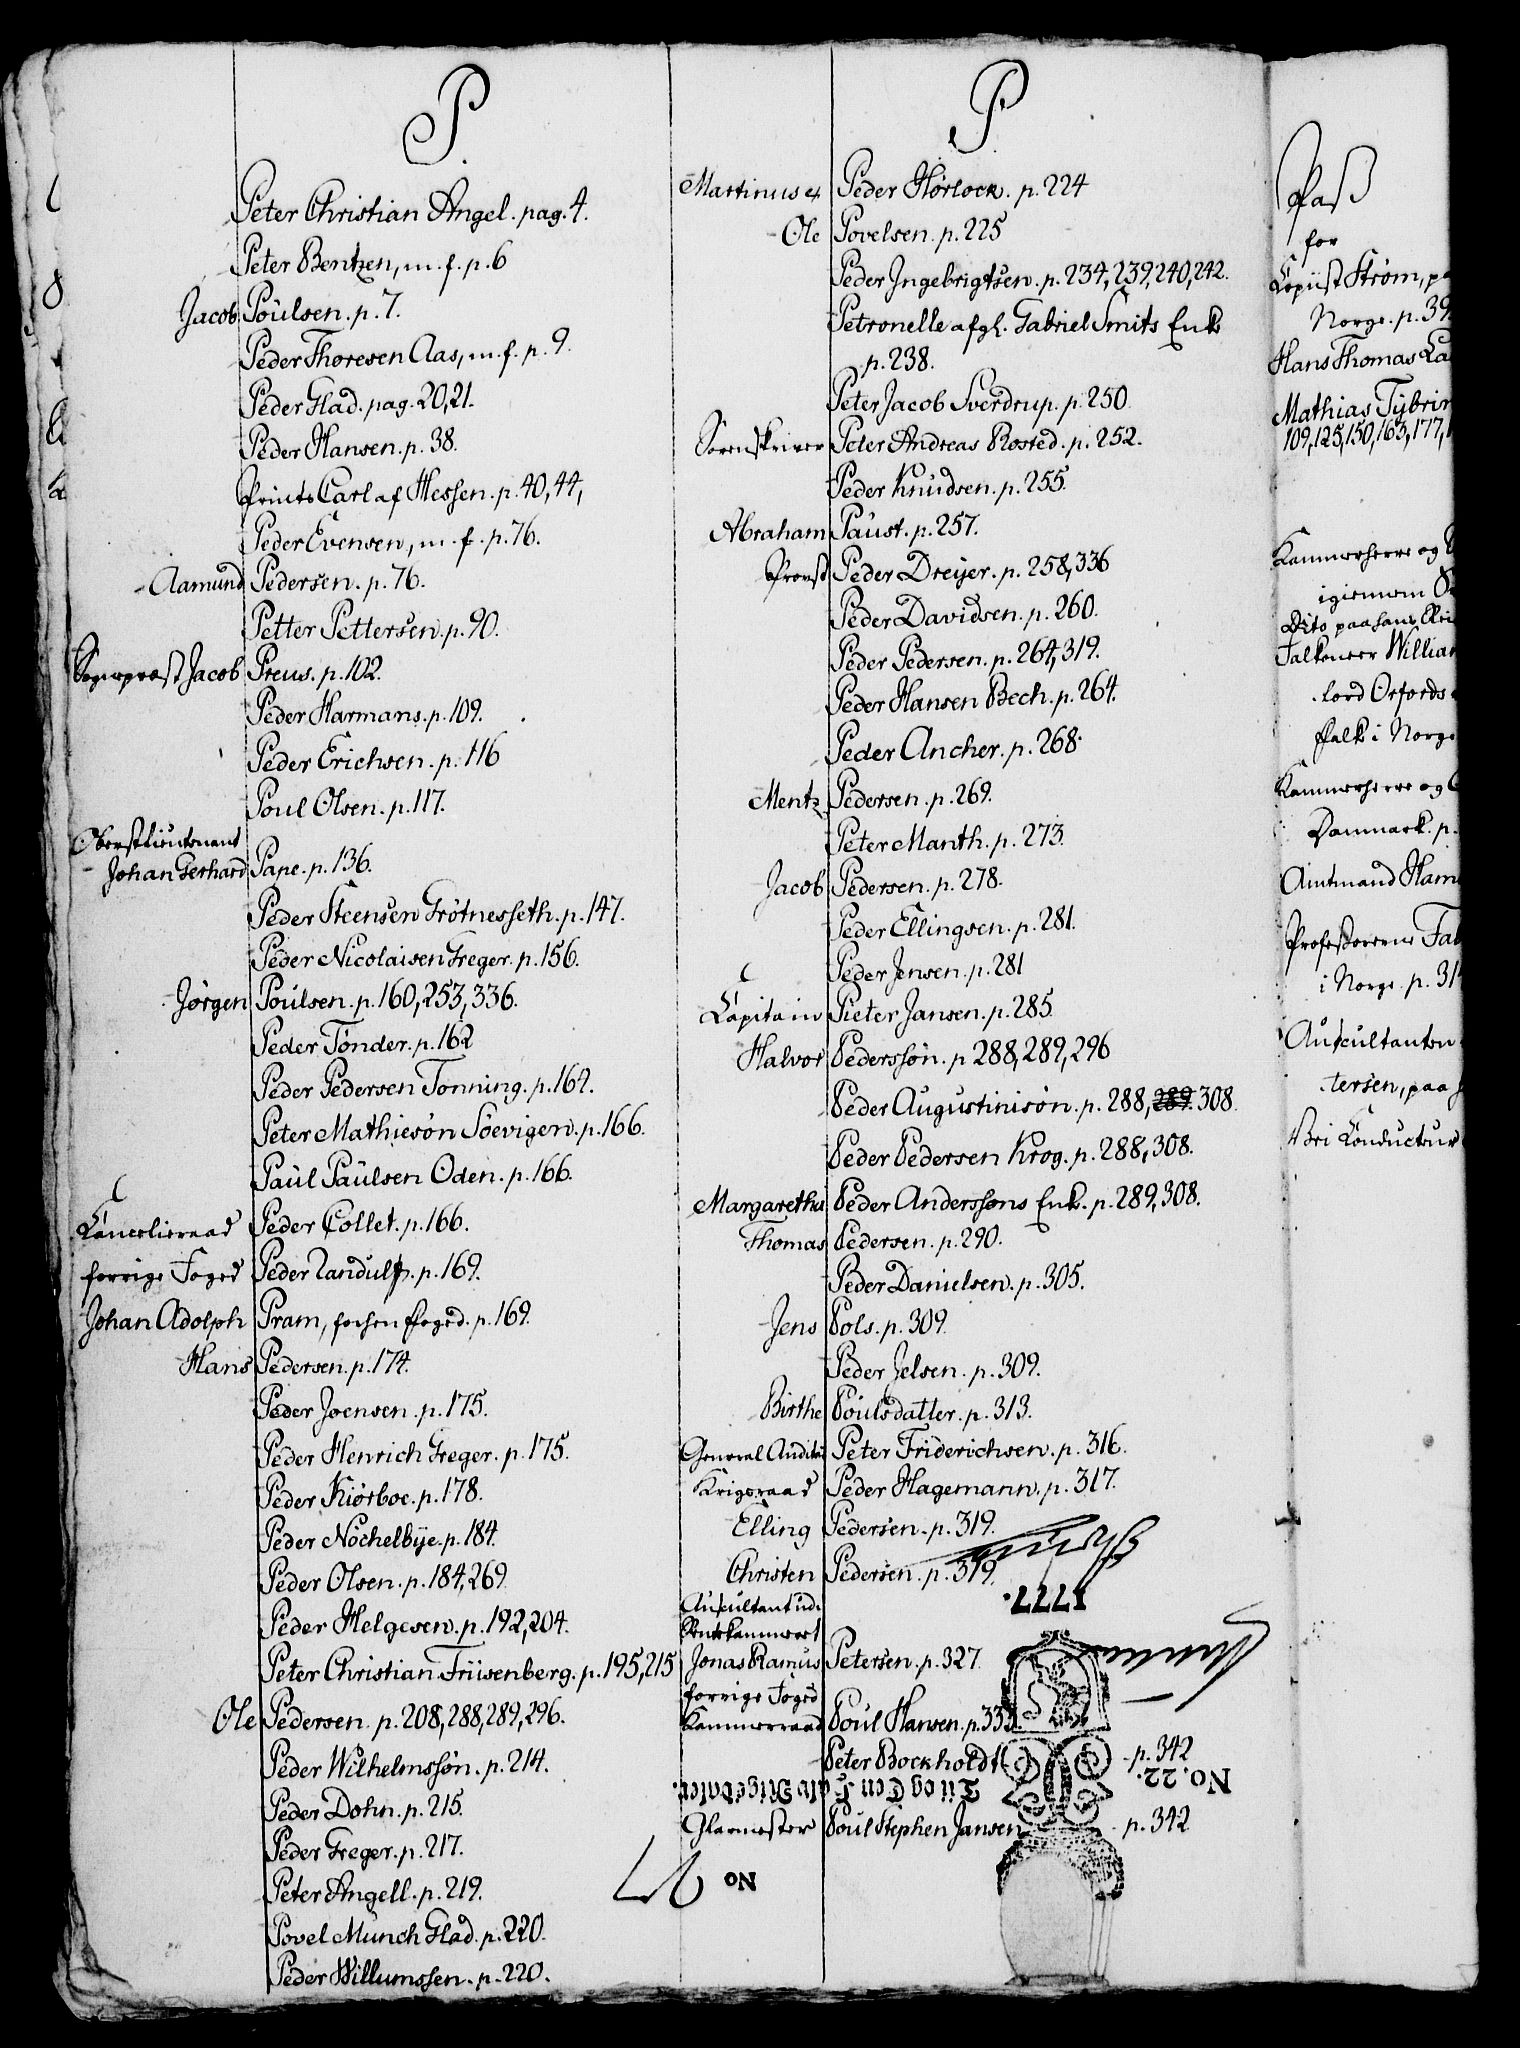 P.
Peter Christian Angel. pag. 4.
Peter Bentzen, m. f. p. 6
Jacob Poulsen. p. 7.
Peder Thoresen Aas, m. f. p. 9.
Peder Glad. pag. 20, 21.
Peder Hansen. p. 38.
Prints Carl af Hessen. p. 40, 44,
Peder Evensen, m. f. p. 76.
Aamund Pedersen. p. 76.
Petter Pettersen. p. 90.
Sogneprest Jacob Preus. p. 102.
Peder Harmans. p. 109.
Peder Erichsen. p. 116
Poul Olsen. p. 117.
Oberstlieutenant
Johan Gerhard Pape. p. 136.
Peder Steensen Grötnesseth. p. 147.
Peder Nicolaisen Greger. p. 156.
Jörgen Poulsen. p. 160, 253, 336.
Peder Tönder. p. 162
Peder Pedersen Tonning. p. 162.
Peter Mathiesön Soevigen. p. 166.
Paul Paulsen Oden. p. 166.
Cancelieraad Peder Collet. p. 166.
forrige Foged Peder Randulf. p. 169.
Johan Adolph Pram, forhen Foged. p. 169.
Hans Pedersen. p. 174.
Peder Joensen. p. 175.
Peder Henrich Greger. p. 175.
Peder Kiørboe. p. 178.
Peder Nöchelbÿe. p. 184.
Peder Olsen. p. 184, 269.
Peder Helgesen. p. 192, 204.
Peter Christian Friisenberg. p. 195, 215
Ole Pedersen. p. 208, 288, 289, 296.
Peder Wilhelmssön. p. 214.
Peder Dohn. p. 215.
Peder Greger. p. 217.
Peter Angell. p. 219.
Povel Munch Glad. p. 220.
Peder Willumssen. p. 220.
P
Martinus et Peder Hørlock. p. 224
Ole Povelsen. p. 225
Peder Jngebrigtsen. p. 234, 239, 240, 242.
Petronelle afgl. Gabriel Smits Enke
p. 238.
Peter Jacob Sverdrup. p. 250
Sorenskriver Peter Andreas Rosted. p. 252.
Peder Knudsen. p. 255.
Abraham Paust. p. 257.
Provst Peder Dreÿer. p. 258, 336
Peder Davidsen. p. 260.
Peder Pedersen. p. 264, 319.
Peder Hansen Bech. p. 264.
Peder Ancher. p. 268.
Mentz Pedersen. p. 269.
Peter Manth. p. 273.
Jacob Pedersen. p. 278.
Peder Ellingsen. p. 281.
Peder Jensen. p. 281
Capitain Pieter Jansen. p. 285.
Halvor Pederssön. p 288, 289, 296
Peder Augustinisön. p. 288, 289. 308.
Peder Pedersen Krog. p. 288, 308.
Margaretha Peder Anderssøns Enke. p. 289, 308.
Thomas Pedersen. p. 290.
Peder Danielsen. p. 305.
Jens Pols. p. 309.
Peder Jelsen. p. 309.
Birthe Poulsdatter. p. 313.
General Auditeur Peter Friderichsen. p. 316.
Krigsraad Peder Hagemann. p. 317.
Elling Pedersen. p. 319.
Christen Pedersen. p. 319.
1777.
Auscultant ud i
Rentekammeret
Jonas Ramus Petersen. p. 327
forrige Foged
Kammerraad Poul Hansen. p. 333.
Peter Bockholdt p. 342
No. 22.
Tü og Een Halv Rigsdaler.
Glarmester Poul Stephen Jansen p. 342
No
Pass
for
Copiist Strøm, pa
Norge. p. 39
Hans Thomas La
Mathias Tÿbrin
109, 125, 150, 163, 177,
Kammerherre og
igiennem
Dito paa hans
Falkeneer Willia
Lord Orfords
Falk i Norge
Kammerherre og
Danmark. p.
Amtmand Ham
Professorerne Fab
i Norge p. 31
Auscultanten
tersen, paa
Vei Conducteur